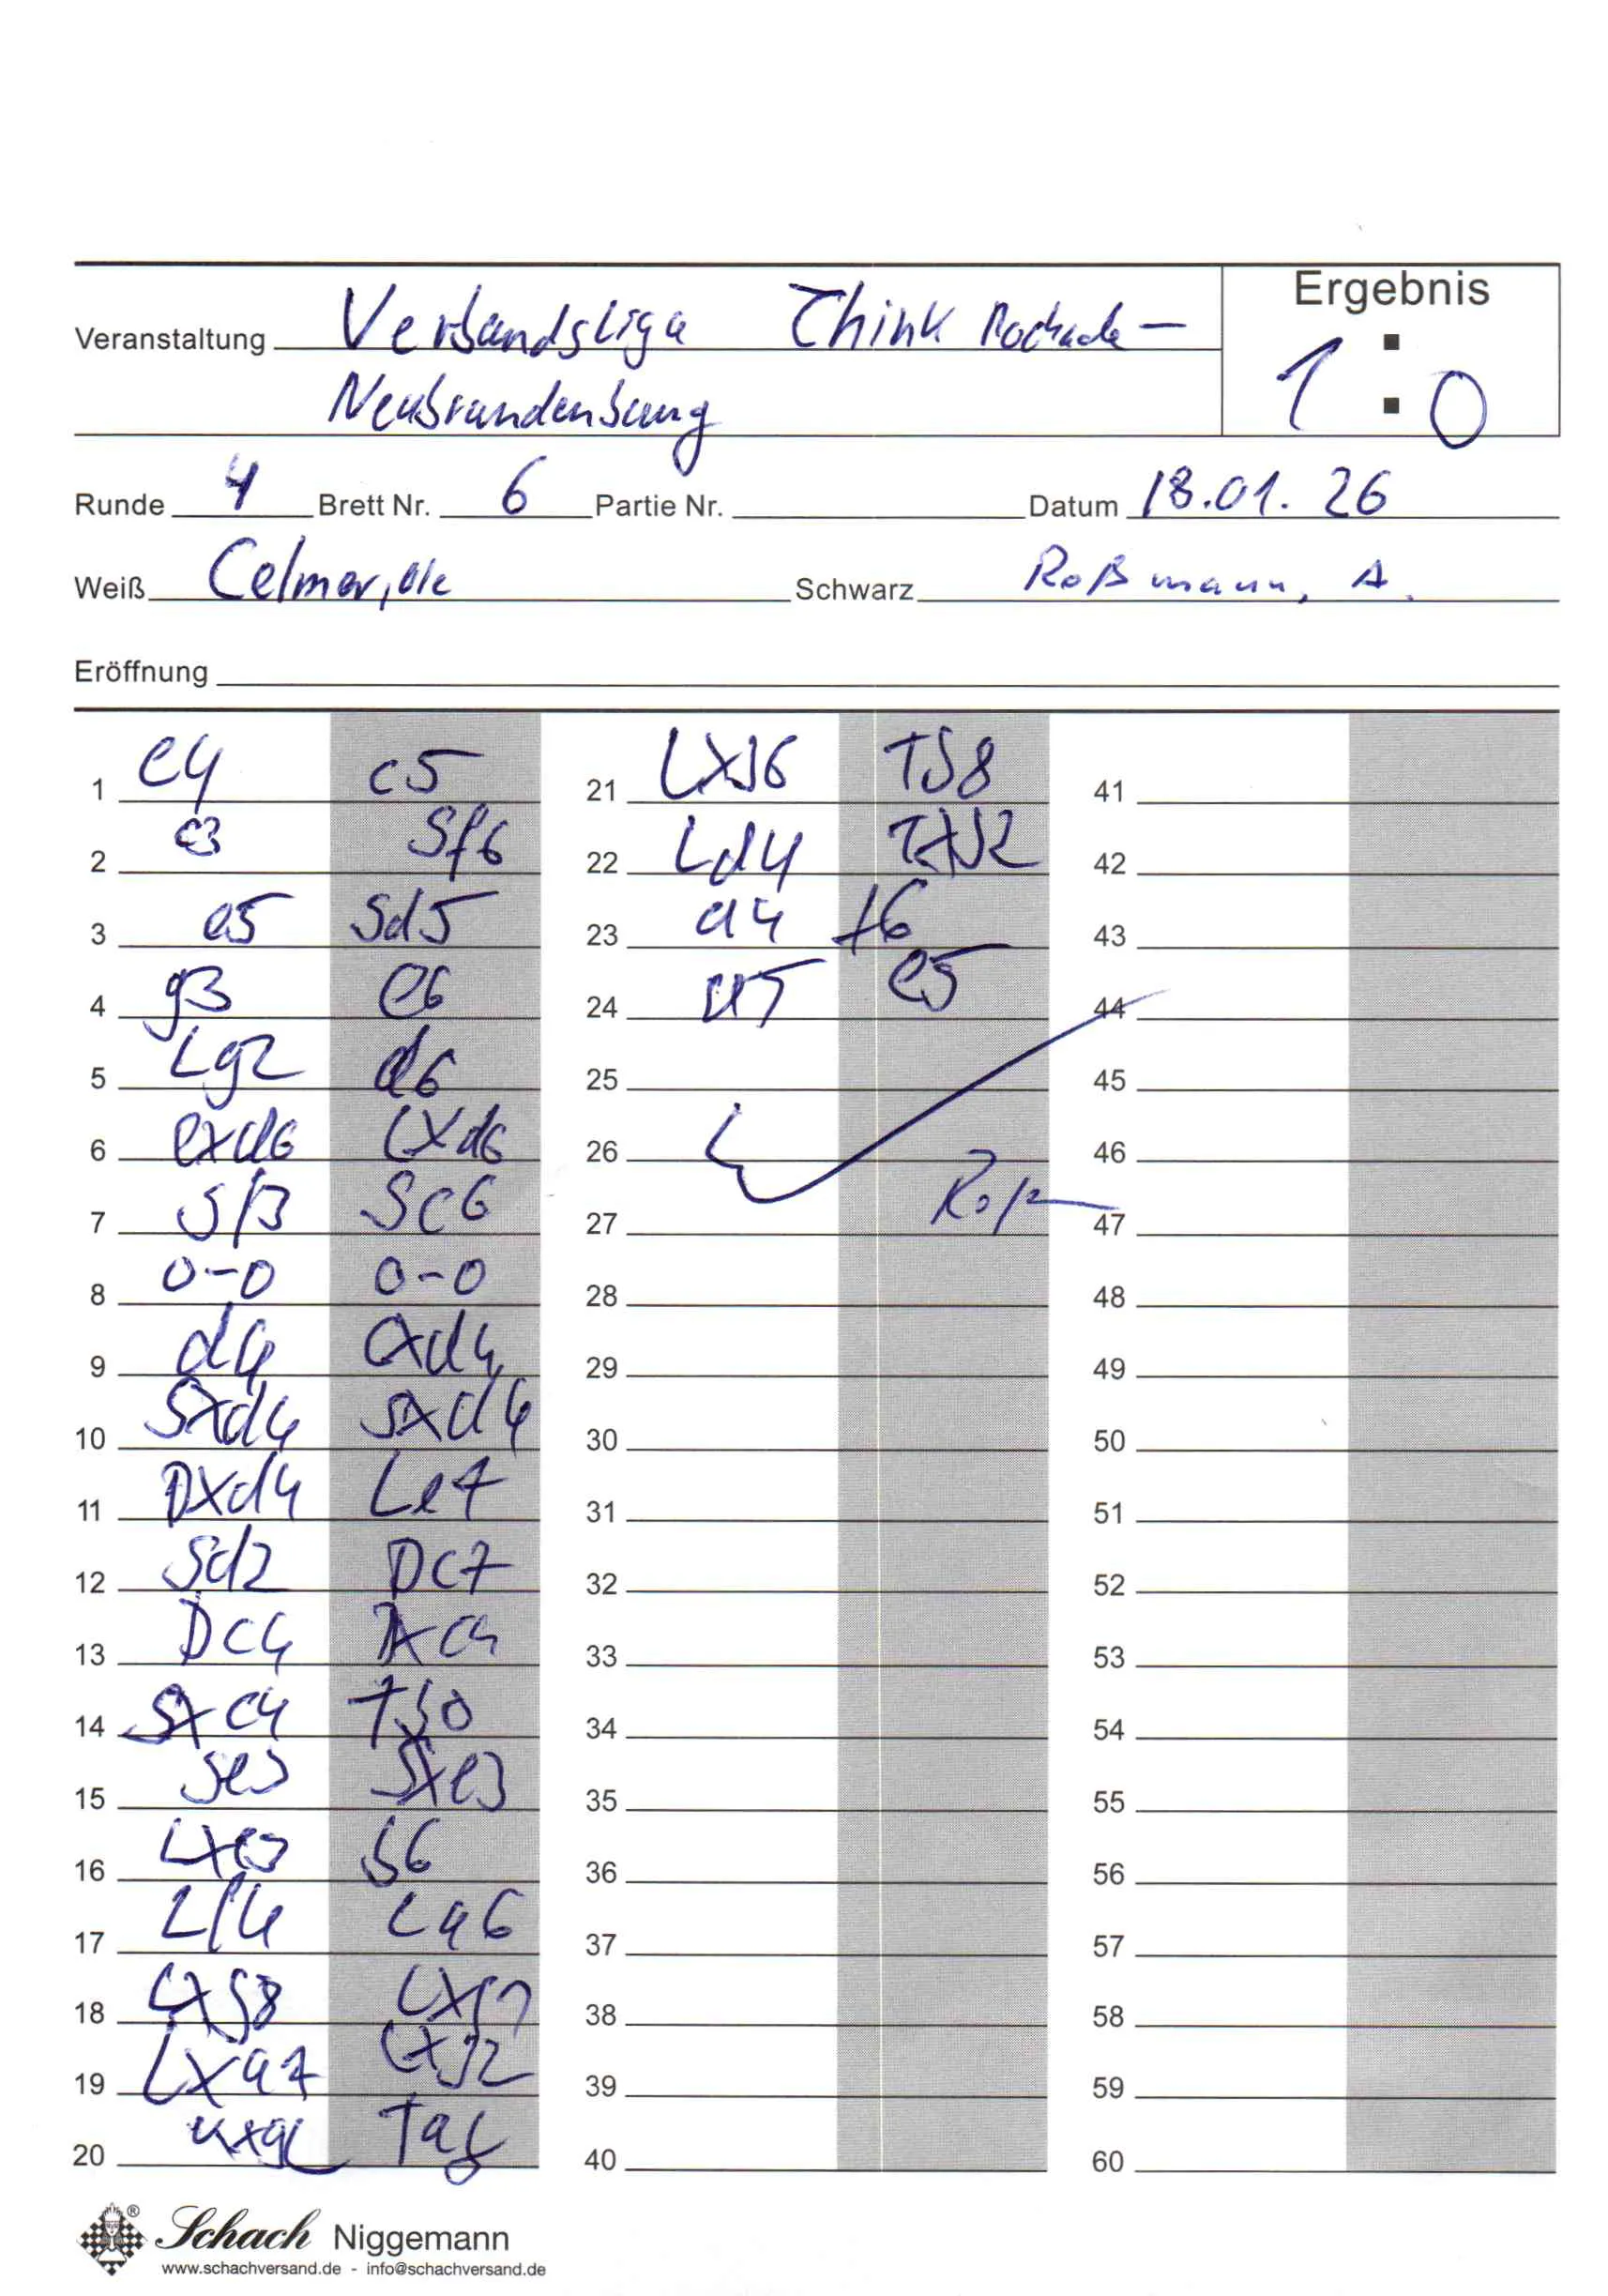 Ergebnis
Veranstaltung Verbandsliga Think Rochade –
Neubrandenburg
1 : 0
Runde 4 Brett Nr. 6 Partie Nr. Datum 18.01.26
Weiß Celmer, Ole Schwarz Roßmann, A.
Eröffnung
1 e4 c5
2 c3 Sf6
3 e5 Sd5
4 g3 e6
5 Lg2 d6
6 exd6 Lxd6
7 Sf3 Sc6
8 0-0 0-0
9 d4 cxd4
10 Sxd4 Sxd4
11 Dxd4 Le7
12 Sd2 Dc7
13 Dc4 Dxc4
14 Sxc4
15 Se3 Sxe3
16 Lxe3 b6
17 Lf4 La6
18 Lxb8 Lxf1
19 Lxa7 Lxg2
20 Kxg2 Ta8
21 Lxb6 Tb8
22 Ld4 Txb2
23 a4 f6
24 a5 e5
25
26
27
28
29
30
31
32
33
34
35
36
37
38
39
40
41
42
43
44
45
46
47
48
49
50
51
52
53
54
55
56
57
58
59
60
Schach Niggemann ®
www.schachversand.de - info@schachversand.de